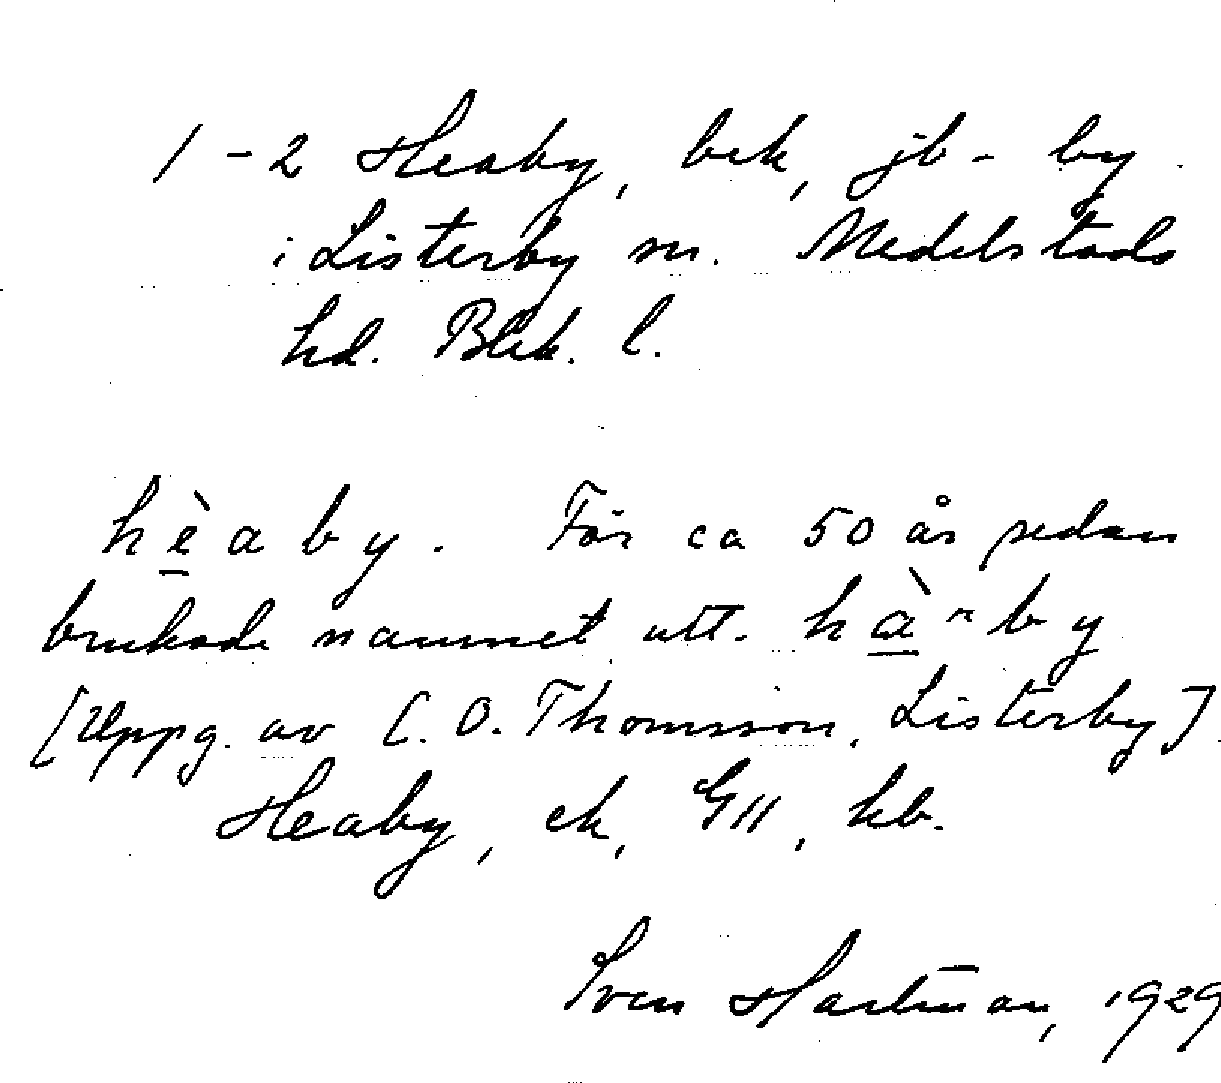 1-2 Heaby, bek, jb-by
i Listerby sn. Medelstads
hd. Blek. l.
hèaby. För ca 50 år sedan
brukade namnet utt. hàˆby
[Uppg. av C. O. Thomsson, Listerby]
Heaby, ek, GII, hb.
Sven Hartman, 1929